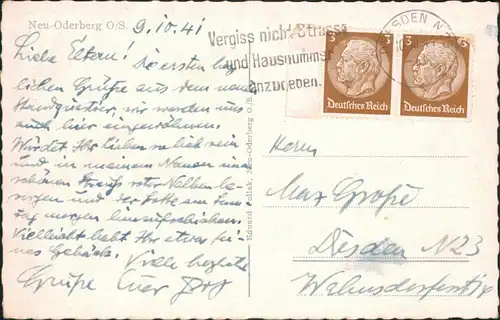 Neu-Oderberg O/S.
9.10.41
Liebe Eltern! Die ersten herz-
lichen Grüße aus dem neuen
Standquartier, wir werden uns
auch hier eingewöhnen.
Würdet Ihr lieben so lieb sein
und in meinem Namen einen
schönen Strauß roter Nelken be-
sorgen und der Lotte am Sonn-
tag morgen hinaufschicken.
Vielleicht habt Ihr etwas fei-
nes Gebäck. Viele herzliche
Grüße Euer
Eduard Pollak, Neu-Oderberg O/S.
DRESDEN N
Vergiss nicht Strasse
und Hausnummer
anzugeben.
3 3
Deutsches Reich Deutsches Reich
Herrn
Max Große
Dresden N23